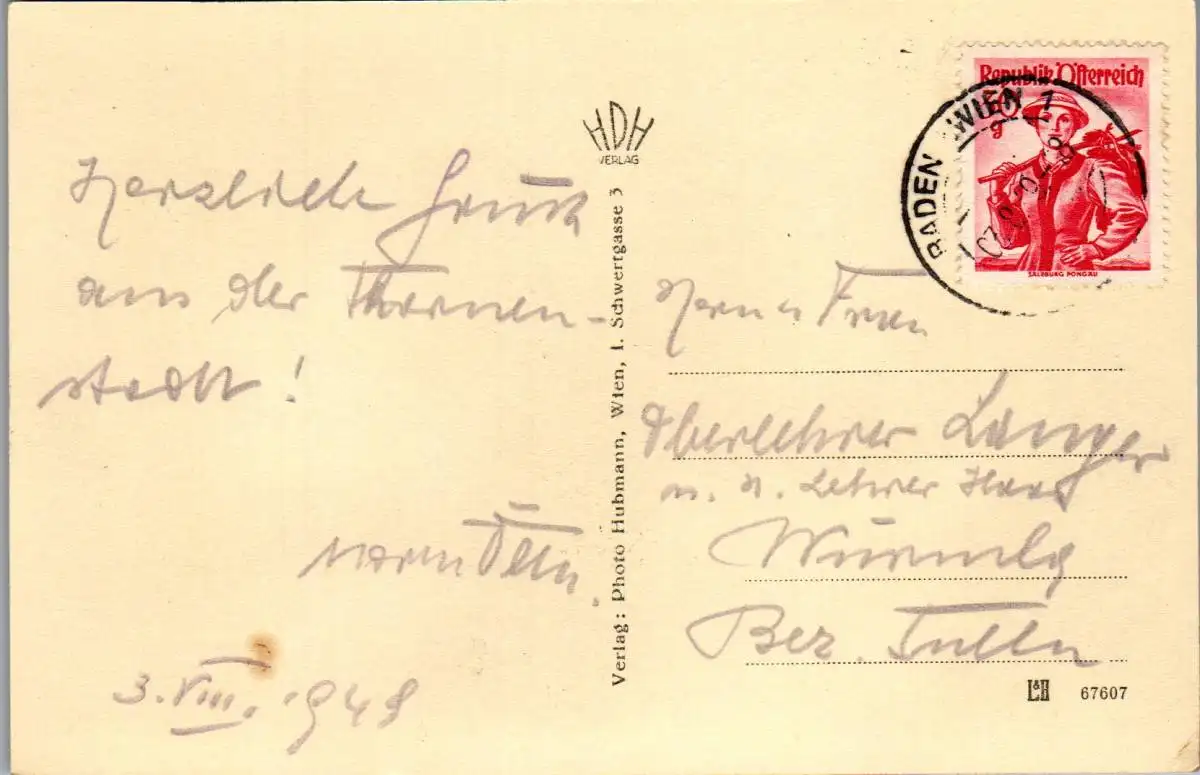 HDH
VERLAG
Herzliche Grüße
aus der Thermen-
stadt!
3. VIII. 1949
Verlag: Photo Hubmann, Wien, I. Schwertgasse 3
Republik Österreich
60
g
SALZBURG PONGAU
BADEN WIEN 1
Herrn u Frau
Oberlehrer Langer
Lehrer
Würmla
Bez. Tulln
L&H 67607